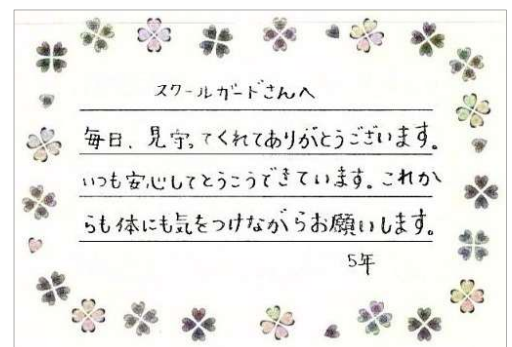 スクールガードさんへ
毎日、見守ってくれてありがとうございます。
いつも安心してとうこうできています。これか
らも体にも気をつけながらお願いします。
5年